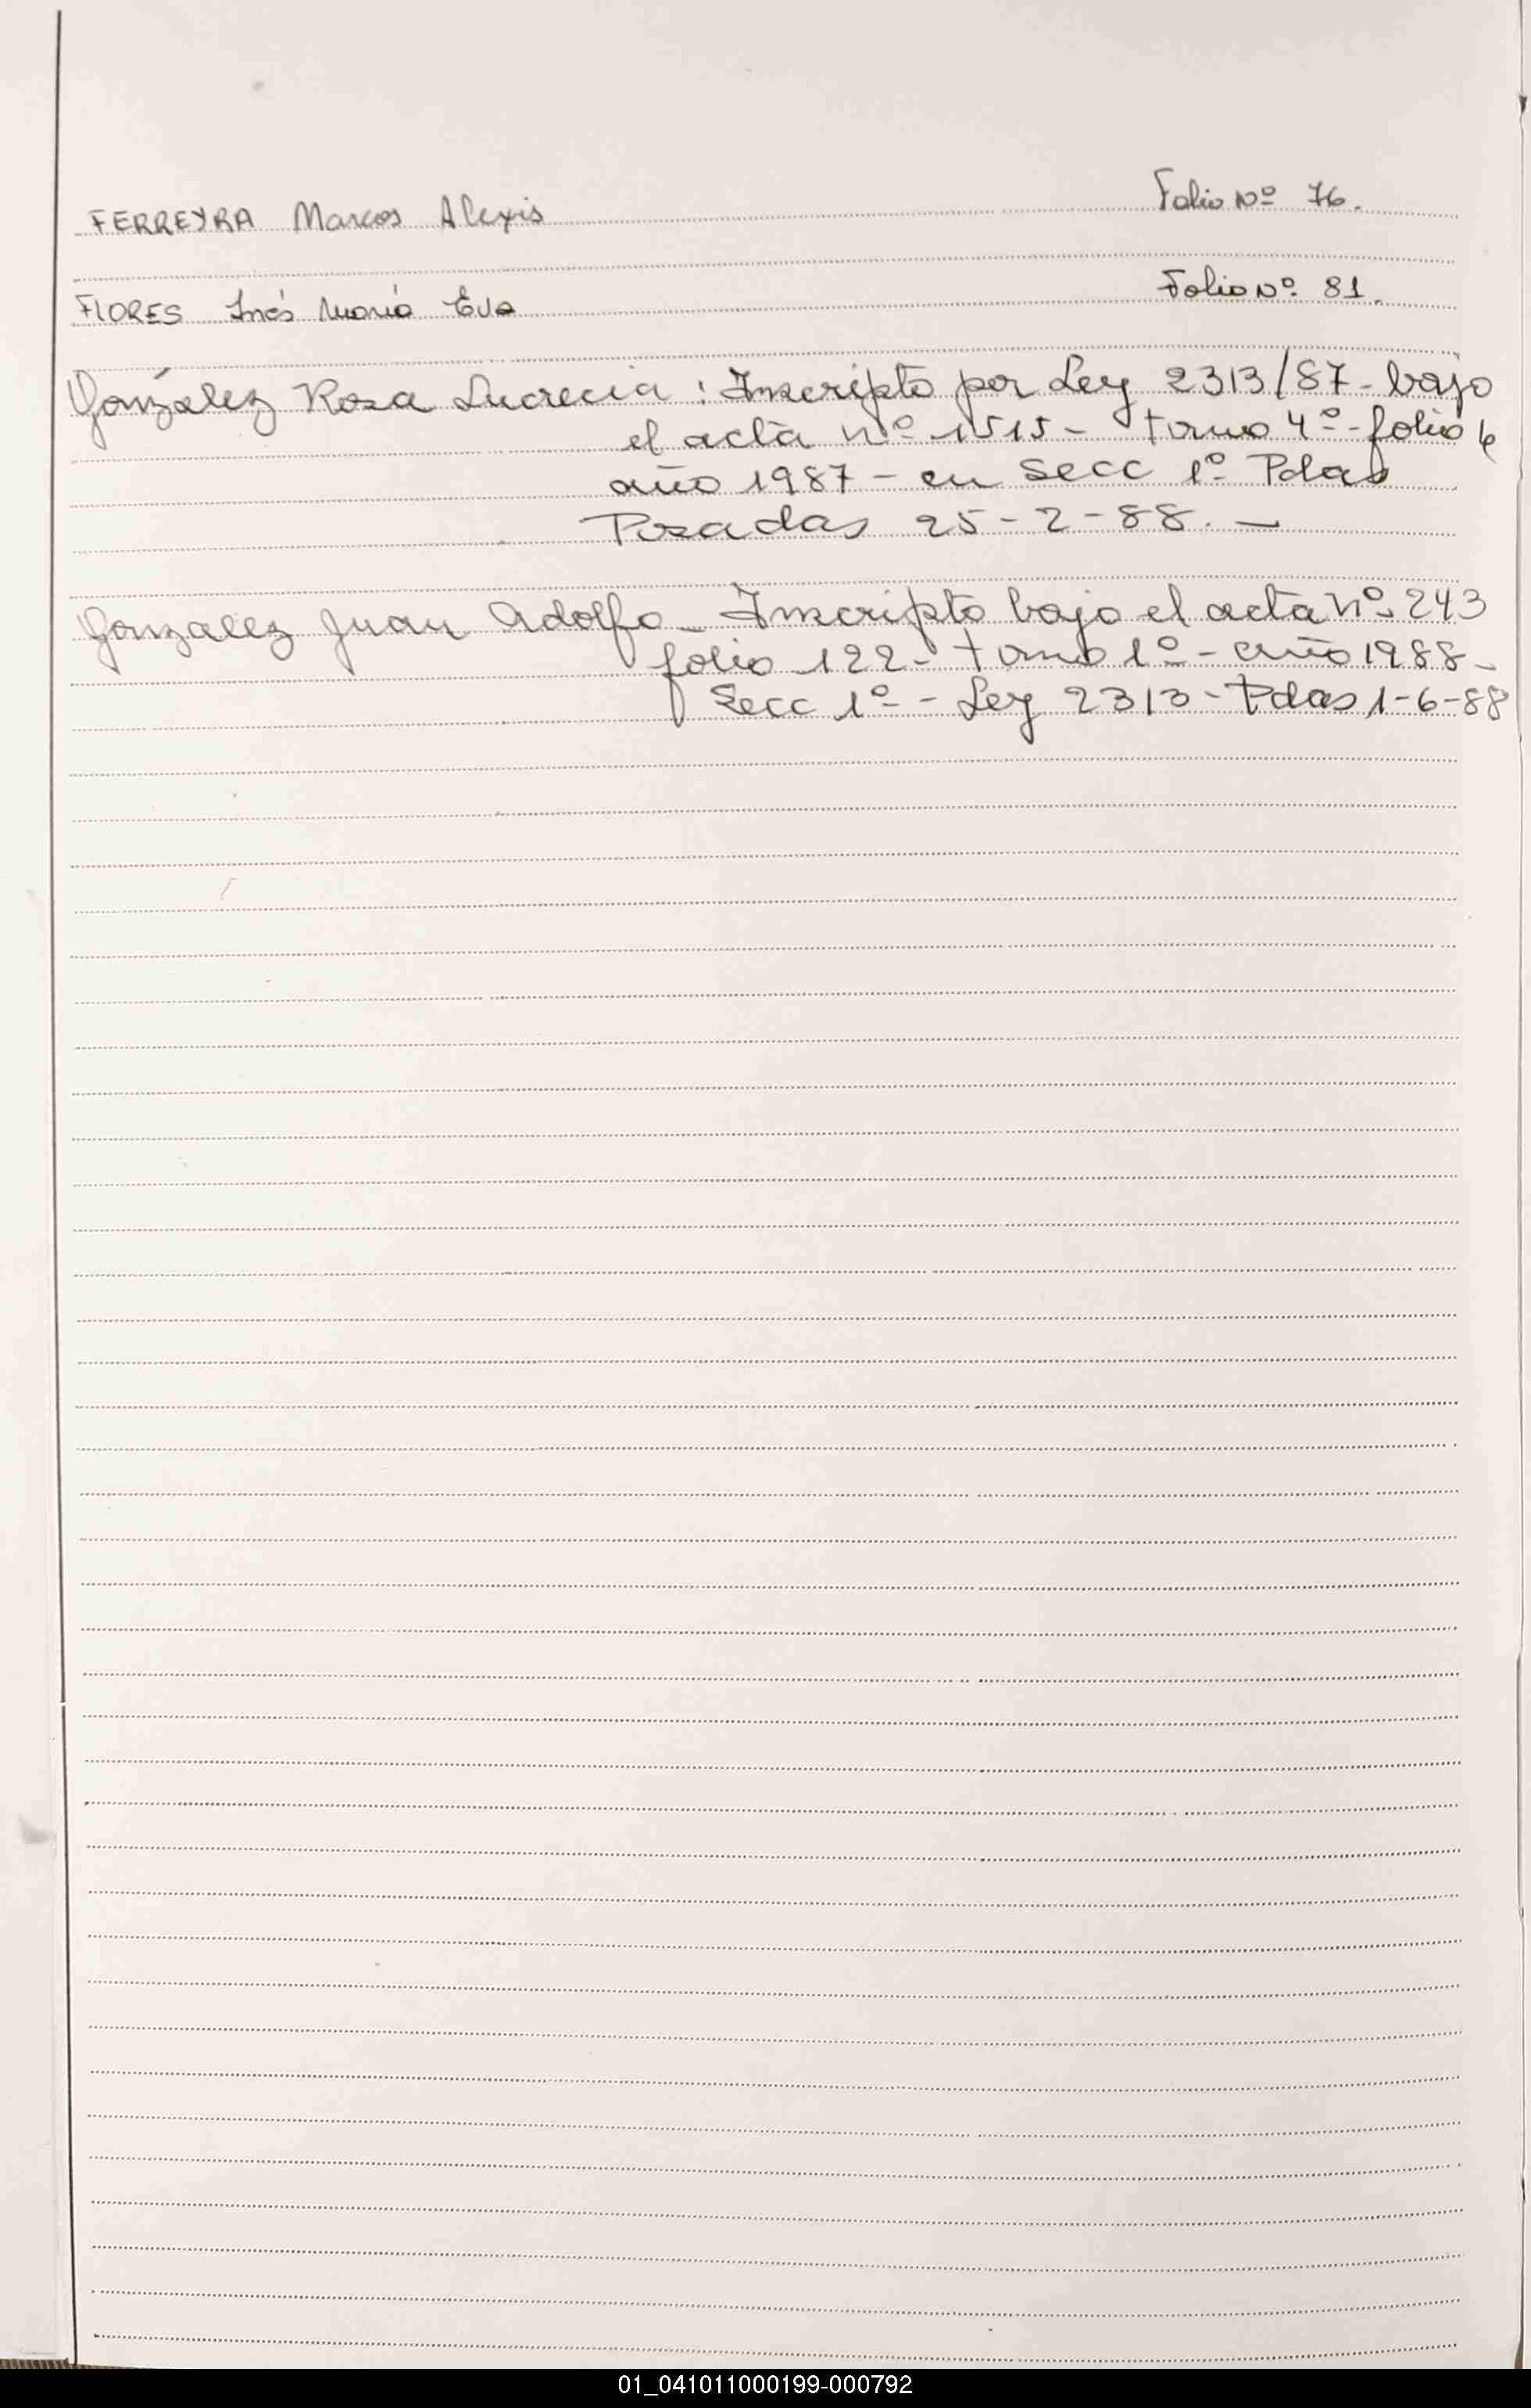 FERREYRA Marcos Alexis Folio Nº 76.
FLORES Inés María Eva Folio Nº 81.
González Rosa Lucrecia : Inscripto por Ley 2313/87 - bajo
el acta nº 1515 - tomo 4º - folio
año 1987 - en Secc 1º Pdas
Posadas 25-2-88. —
Gonzalez Juan Adolfo - Inscripto bajo el acta Nº 243
folio 122 - tomo 1º - año 1988 -
Secc 1º - Ley 2313 - Pdas 1-6-88
01_041011000199-000792